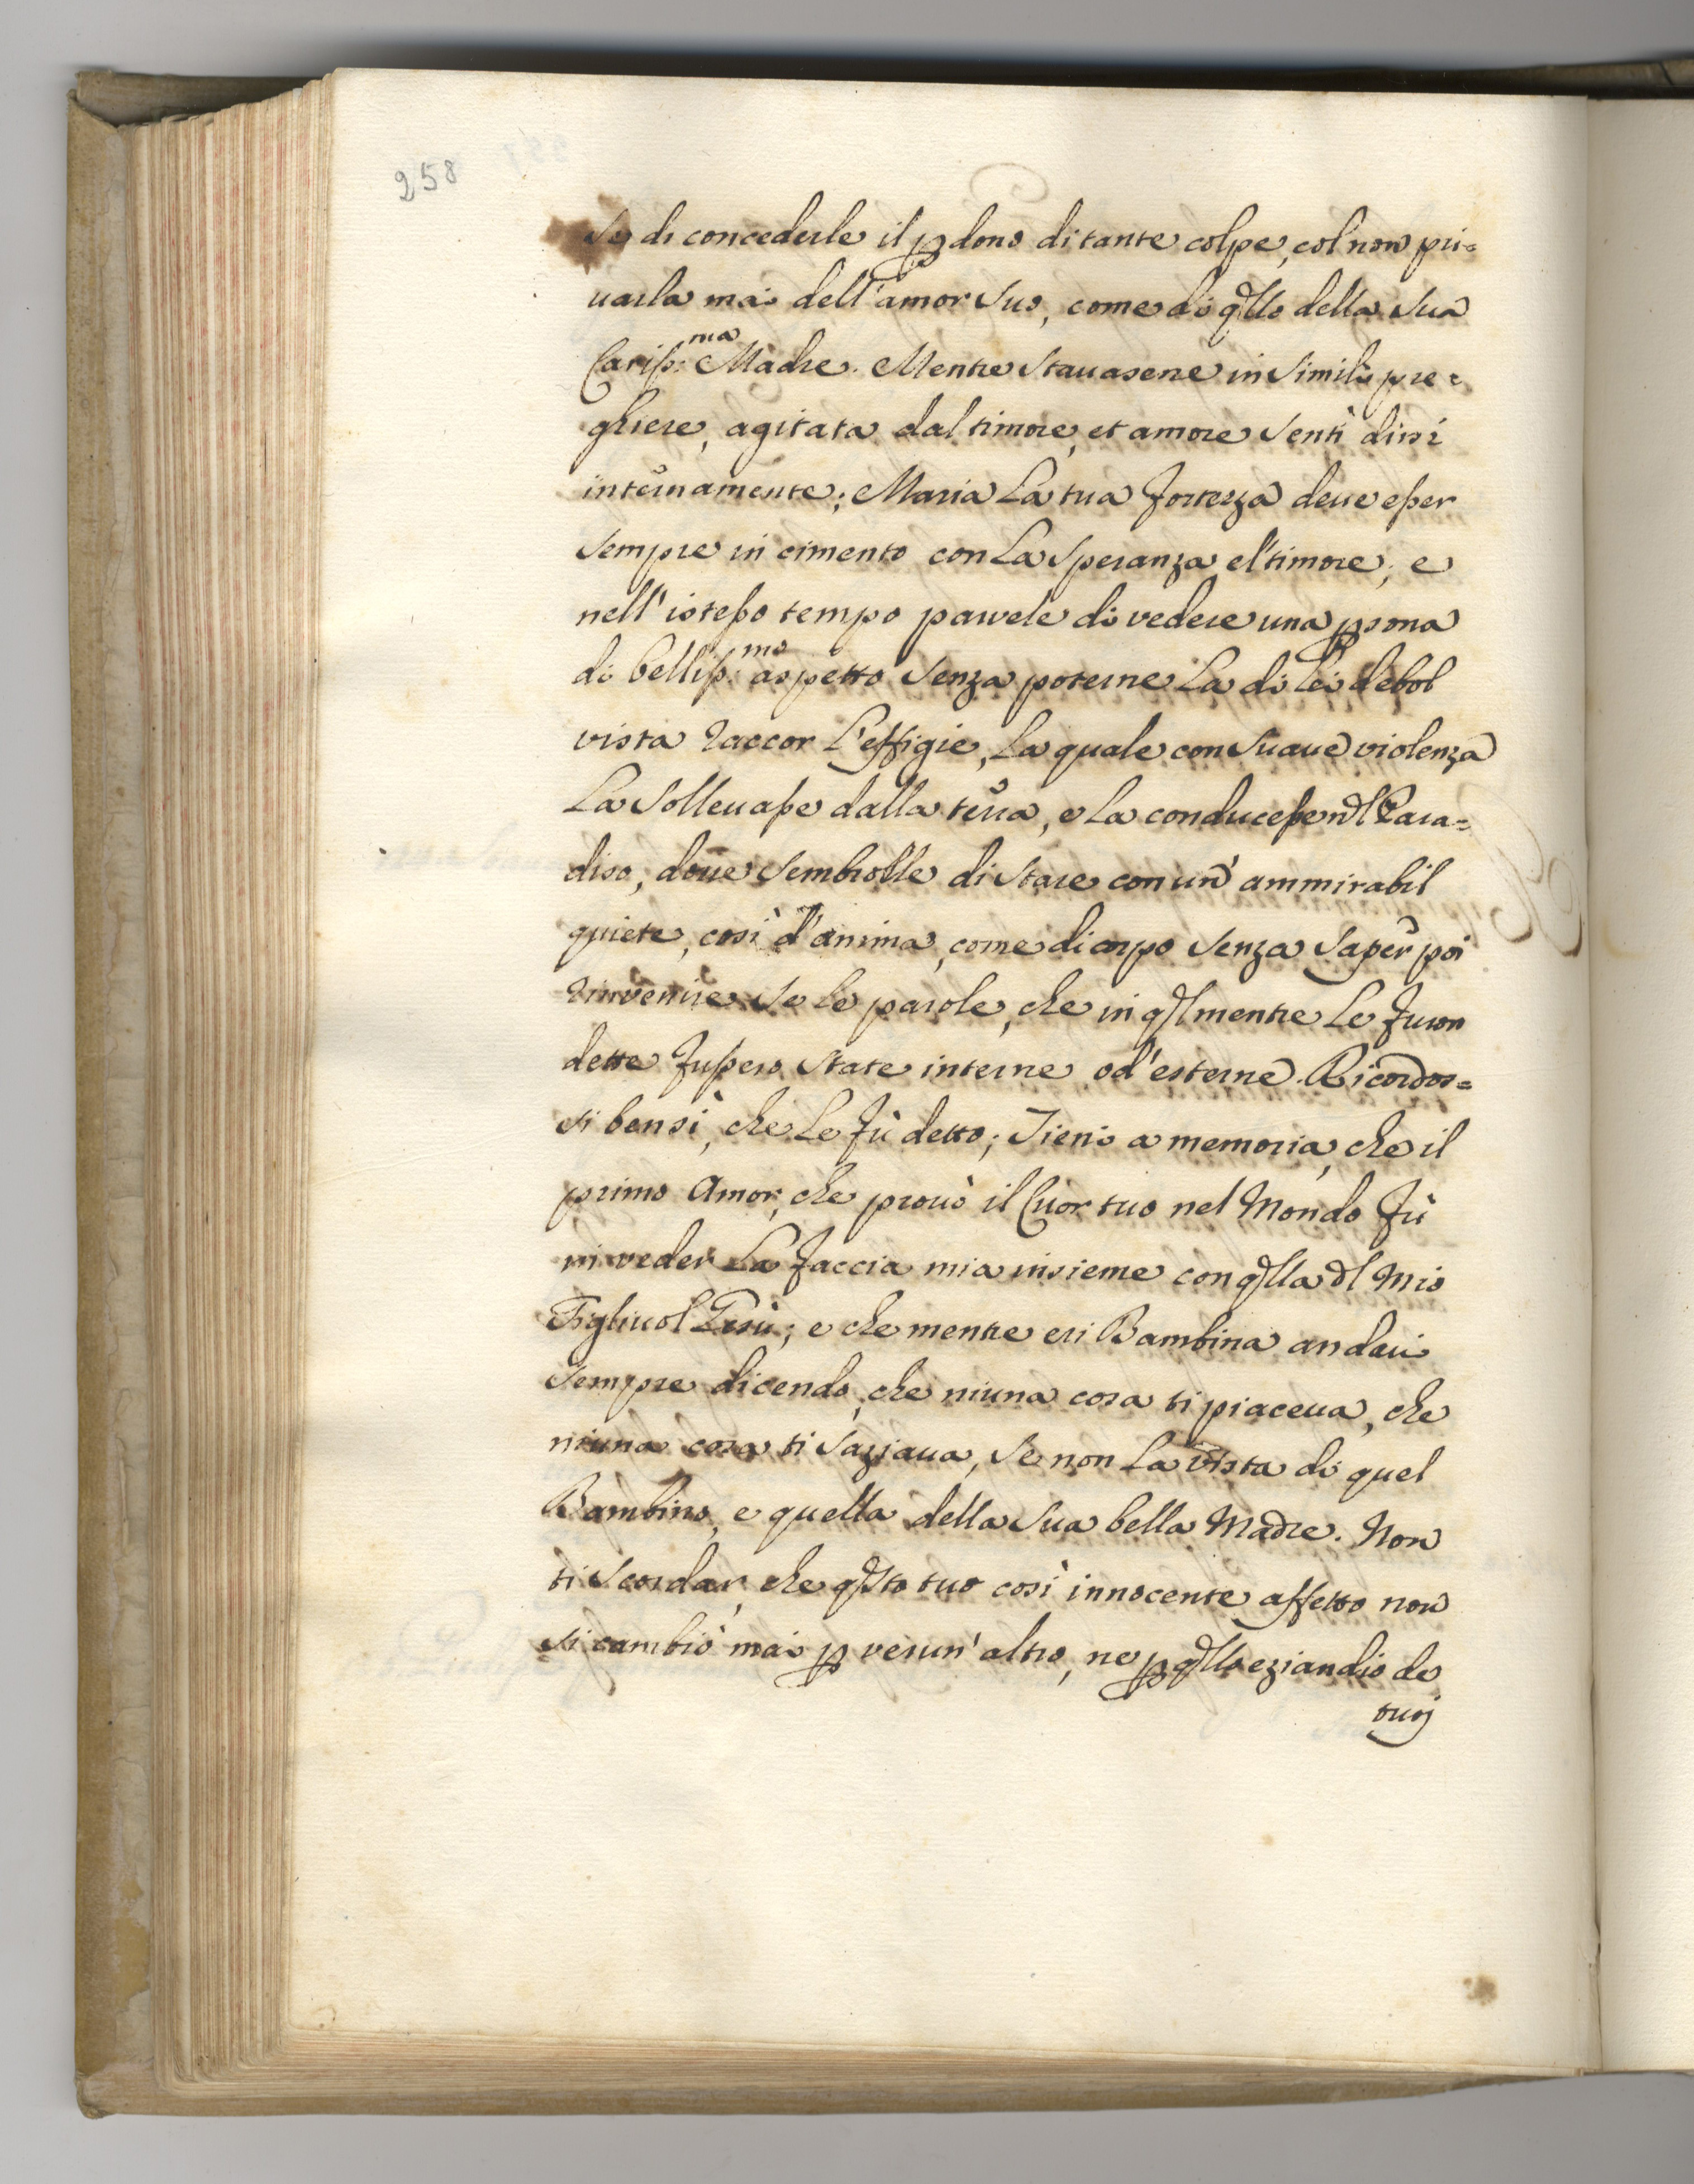 258
se di concederle il ꝑdono di tante colpe, col non pri=
uarla mai dell'amor suo, come di qllo della sua
Cariss:ma Madre. Mentre stauasene in simili pre=
ghiere, agitata dal timore, et amore sentì dirsi
internamente; Maria La tua fortezza deue esser
sempre in cimento con La speranza, e'l timore; e
nell'istesso tempo parvele di vedere una ꝑsona
di belliss:mo aspetto senza poterne La di Lei debol
vista raccor L'effigie, La quale con suaue violenza
La solleuasse dalla terra, e La conducesse nel Para=
diso, doue sembrolle di stare con un' ammirabil
quiete, così d'anima, come di corpo senza saper poi
rinvenire se le parole, che in qlmentre Le furon
dette fussero state interne, od'esterne. Ricordos=
si bensì, che Le fù detto; Tieni a memoria, che il
primo Amor, che prouò il Cuor tuo nel Mondo fù
in veder La faccia mia insieme con qlla dl mio
Figliuol Giesù; e che mentre eri Bambina andaui
sempre dicendo, che niuna cosa ti piaceua, che
niuna cosa ti saziaua, se non La vista di quel
Bambino, e quella della sua bella Madre. Non
ti scordar, che qsto tuo così innocente affetto non
si cambiò mai ꝑ verun' altro, ne ꝑ qllo eziandio de
tuoj